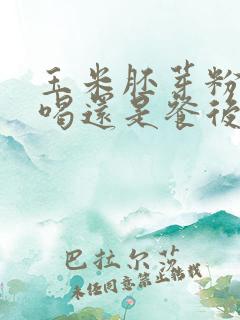 玉米胚芽粉
喝還是餐後
巴拉尔莎
未经同意禁止转载